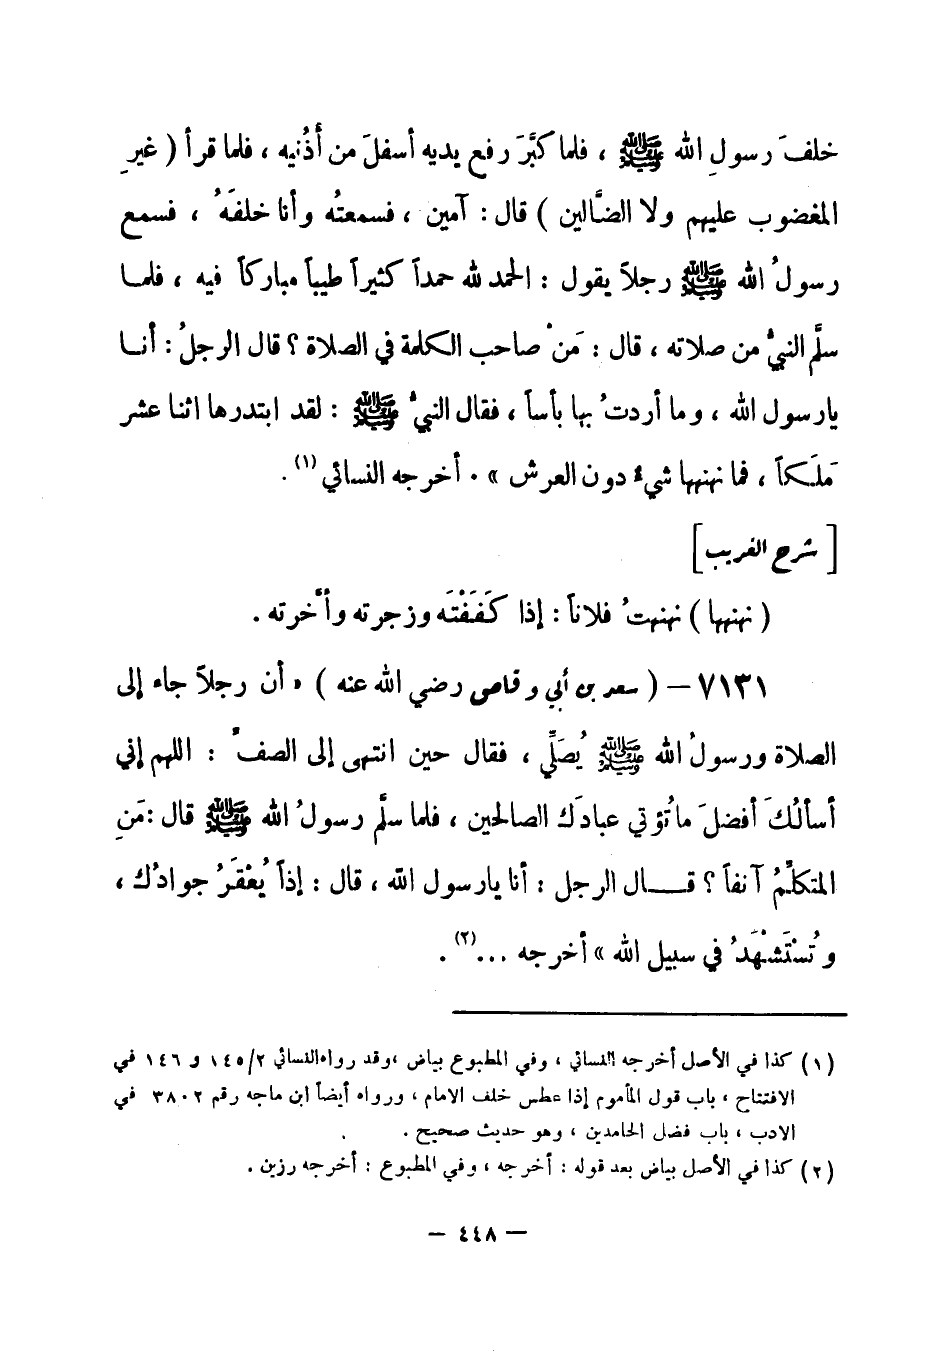 خلفَ رسولِ الله ﷺ ، فلما كبَّرَ رفع يديه أسفلَ من أُذُنيه ، فلما قرأ ( غيرِ
المغضوب عليهم ولا الضَّالين ) قال : آمين ، فسمعتُه وأنا خلفَهُ ، فسمع
رسولُ الله ﷺ رجلاً يقول : الحمد لله حمداً كثيراً طيباً مباركاً فيه ، فلمـا
سلَّم النبيُّ من صلاته ، قال : مَنْ صاحب الكلمة في الصلاة ؟ قال الرجلُ : أنـا
يارسول الله ، وما أردتُ بها بأساً ، فقال النبيُّ ﷺ : لقد ابتدرها اثنا عشر
مَلَكاً ، فما نهنهها شيءٌ دون العرش » . أخرجه النسائي (١) .
[ شرح الغريب ]
( نهنهها ) نهنهتُ فلاناً : إذا كَفَفْتَه وزجرته وأخَّرته .
٧١٣١ – ( سعد بن أبي وقاص رضي الله عنه ) « أن رجلاً جاء إلى
الصلاة ورسولُ الله ﷺ يُصَلِّي ، فقال حين انتهى إلى الصفِّ : اللهم إني
أسألُكَ أفضلَ ما تُؤتي عبادَك الصالحين ، فلما سلَّم رسولُ الله ﷺ قال : مَنِ
المتكلِّمُ آنفاً ؟ قـــال الرجل : أنا يارسول الله ، قال : إذاً يُعْقَرُ جوادُك ،
وتُسْتَشْهَدُ في سبيل الله » أخرجه ... (٢) .
(١) كذا في الأصل أخرجه النسائي ، وفي المطبوع بياض ،وقد رواه النسائي ١٤٥/٢ و ١٤٦ في
الافتتاح ، باب قول المأموم إذا عطس خلف الامام ، ورواه أيضاً ابن ماجه رقم ٣٨٠٢ في
الادب ، باب فضل الحامدين ، وهو حديث صحيح .
(٢) كذا في الأصل بياض بعد قوله : أخرجه ، وفي المطبوع : أخرجه رزين .
— ٤٤٨ —